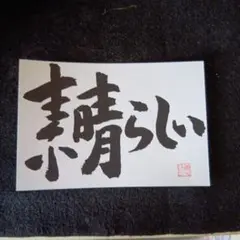 素晴らしい